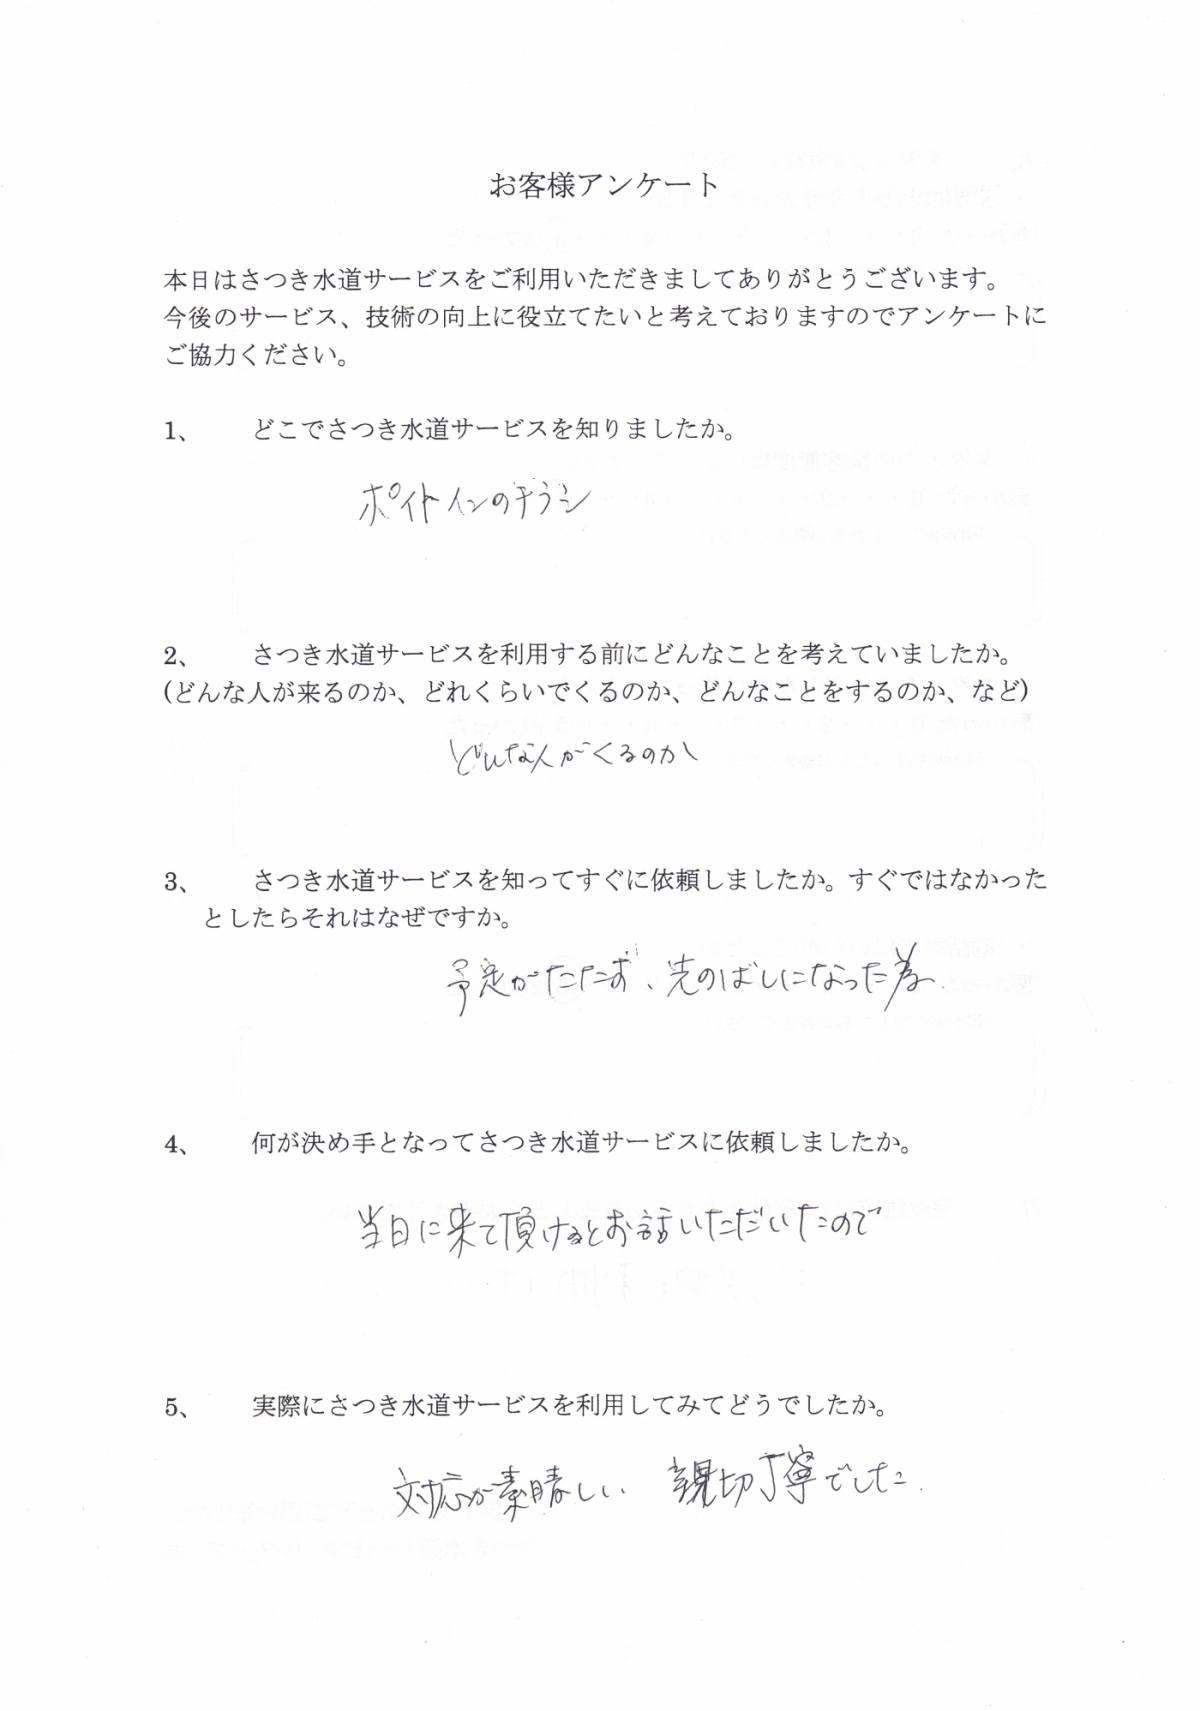 お客様アンケート
本日はさつき水道サービスをご利用いただきましてありがとうございます。
今後のサービス、技術の向上に役立てたいと考えておりますのでアンケートに
ご協力ください。
1、 どこでさつき水道サービスを知りましたか。
ポイントインのチラシ
2、 さつき水道サービスを利用する前にどんなことを考えていましたか。
(どんな人が来るのか、どれくらいでくるのか、どんなことをするのか、など)
どんな人がくるのか
3、 さつき水道サービスを知ってすぐに依頼しましたか。すぐではなかった
としたらそれはなぜですか。
予定がたたず、先のばしになった為
4、 何が決め手となってさつき水道サービスに依頼しましたか。
当日に来て頂けるとお話いただいたので
5、 実際にさつき水道サービスを利用してみてどうでしたか。
対応が素晴しい 親切丁寧でした